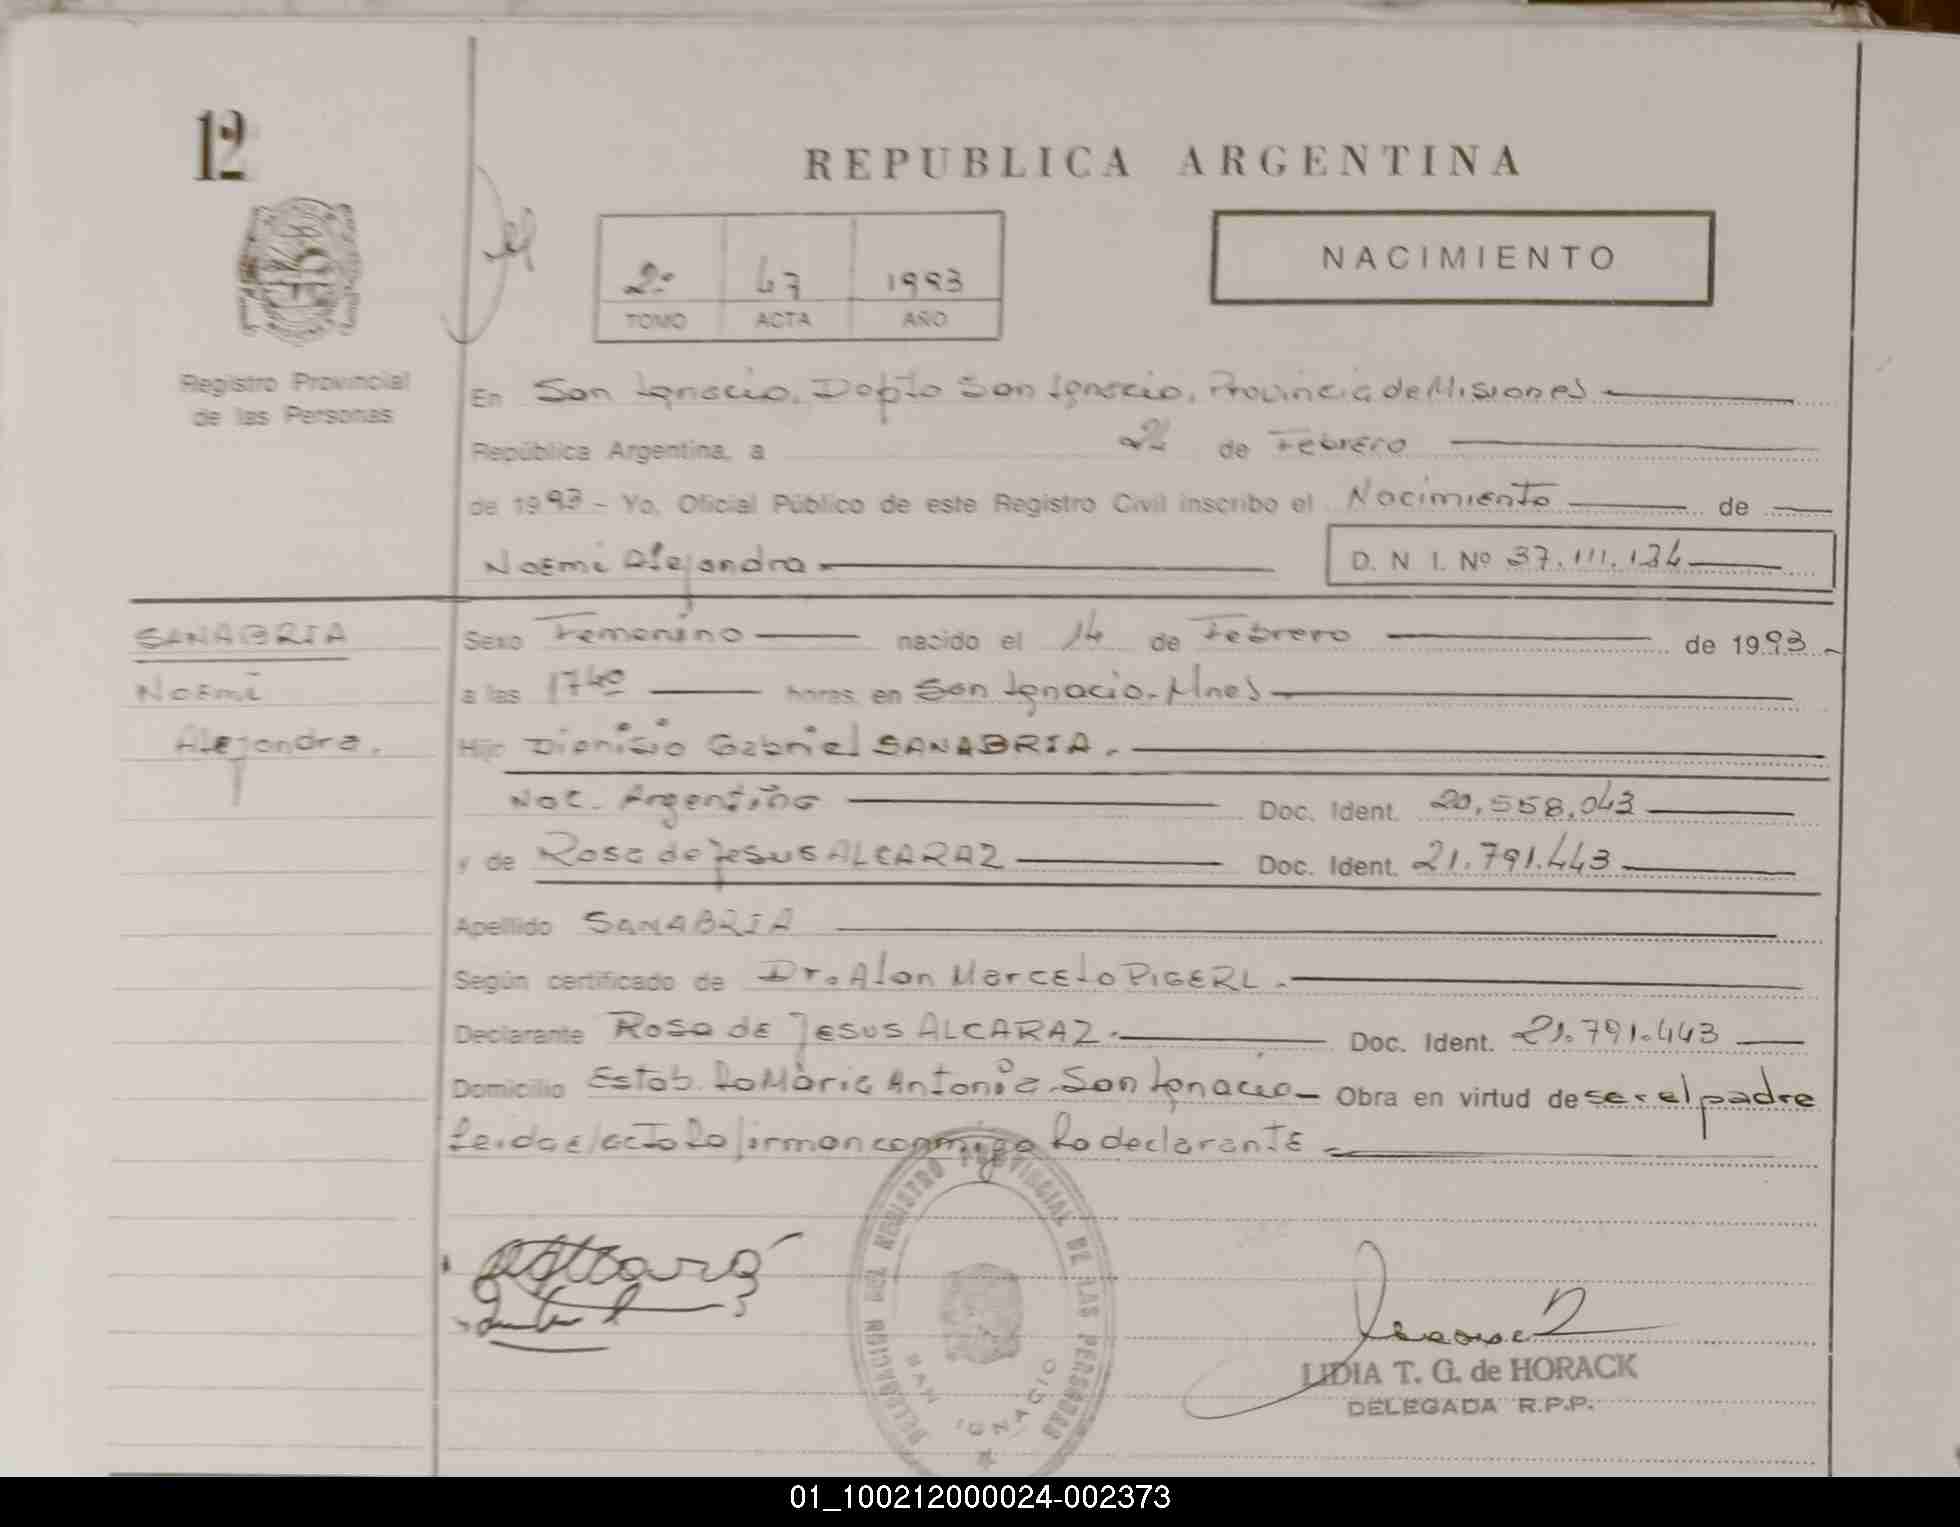 12
REPUBLICA ARGENTINA
NACIMIENTO
2º 47 1993
TOMO ACTA AÑO
Registro Provincial
de las Personas
En San Ignacio, Depto San Ignacio, Provincia de Misiones
República Argentina, a 24 de Febrero
de 1993 - Yo, Oficial Público de este Registro Civil inscribo el Nacimiento de
Noemi Alejandra D. N I. Nº 37.111.134
SANABRIA
Noemi
Alejandra.
Sexo Femenino nacido el 14 de Febrero de 1993
a las 1740 horas, en San Ignacio - Mnes
Hijo Dionisio Gabriel SANABRIA.
Nac. Argentino Doc. Ident. 20.558.043
y de Rosa de Jesus ALCARAZ Doc. Ident. 21.791.443
Apellido SANABRIA
Según certificado de Dr. Alan Marcelo PIGERL.
Declarante Rosa de Jesus ALCARAZ. Doc. Ident. 21.791.443
Domicilio Estab. La Maria Antonia - San Ignacio - Obra en virtud de ser el padre
Leida el acto la firman conmigo la declarante
DELEGACION DEL REGISTRO PROVINCIAL DE LAS PERSONAS
SAN IGNACIO
LIDIA T. G. de HORACK
DELEGADA R.P.P.
01_100212000024-002373